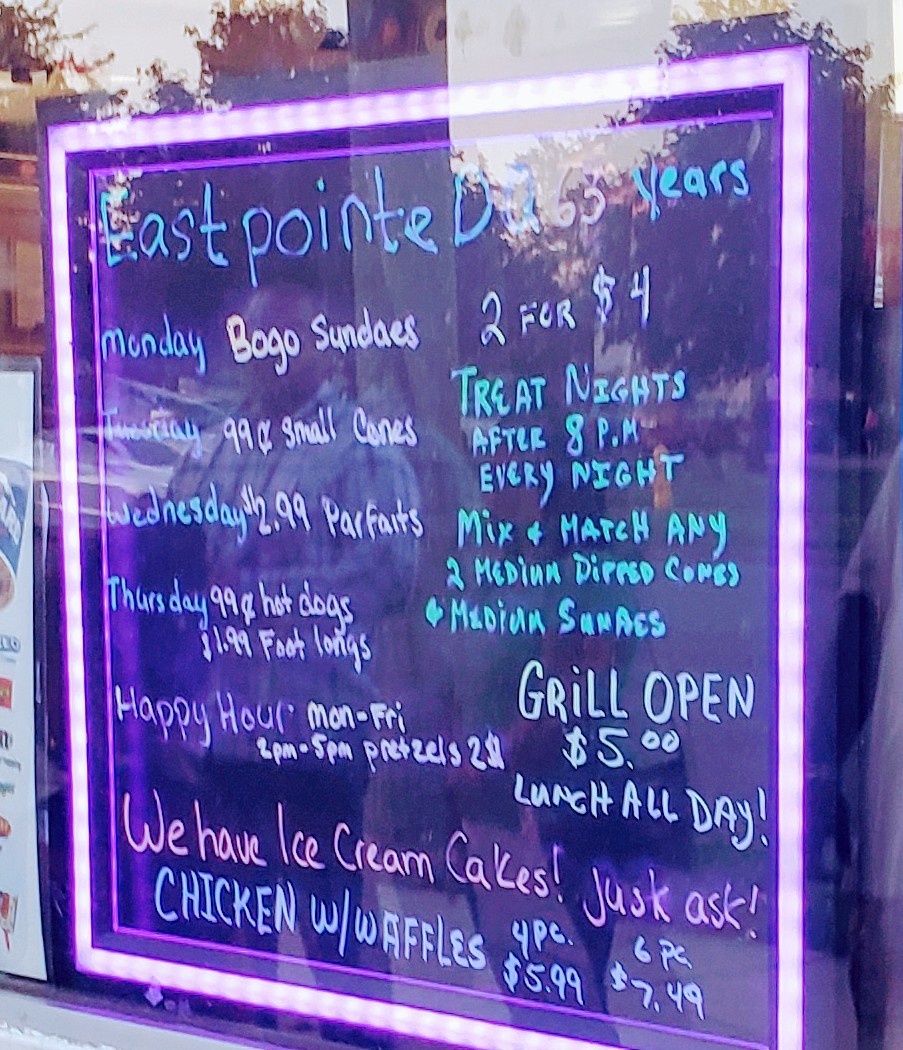 Eastpointe DQ 63 years
Monday Bogo Sundaes
Tuesday 99¢ Small Cones
Wednesday $2.99 Parfaits
Thursday 99¢ hot dogs
$1.99 Foot longs
Happy Hour Mon-Fri
2pm-5pm pretzels 2$
2 FOR $4
TREAT NIGHTS
AFTER 8 P.M
EVERY NIGHT
MIX & MATCH ANY
2 MEDIUM DIPPED CONES
& MEDIUM SUNDAES
GRILL OPEN
$5.00
LUNCH ALL DAY!
We have Ice Cream Cakes! Just ask!
CHICKEN W/WAFFLES 4pc. 6 pc
$5.99 $7.49